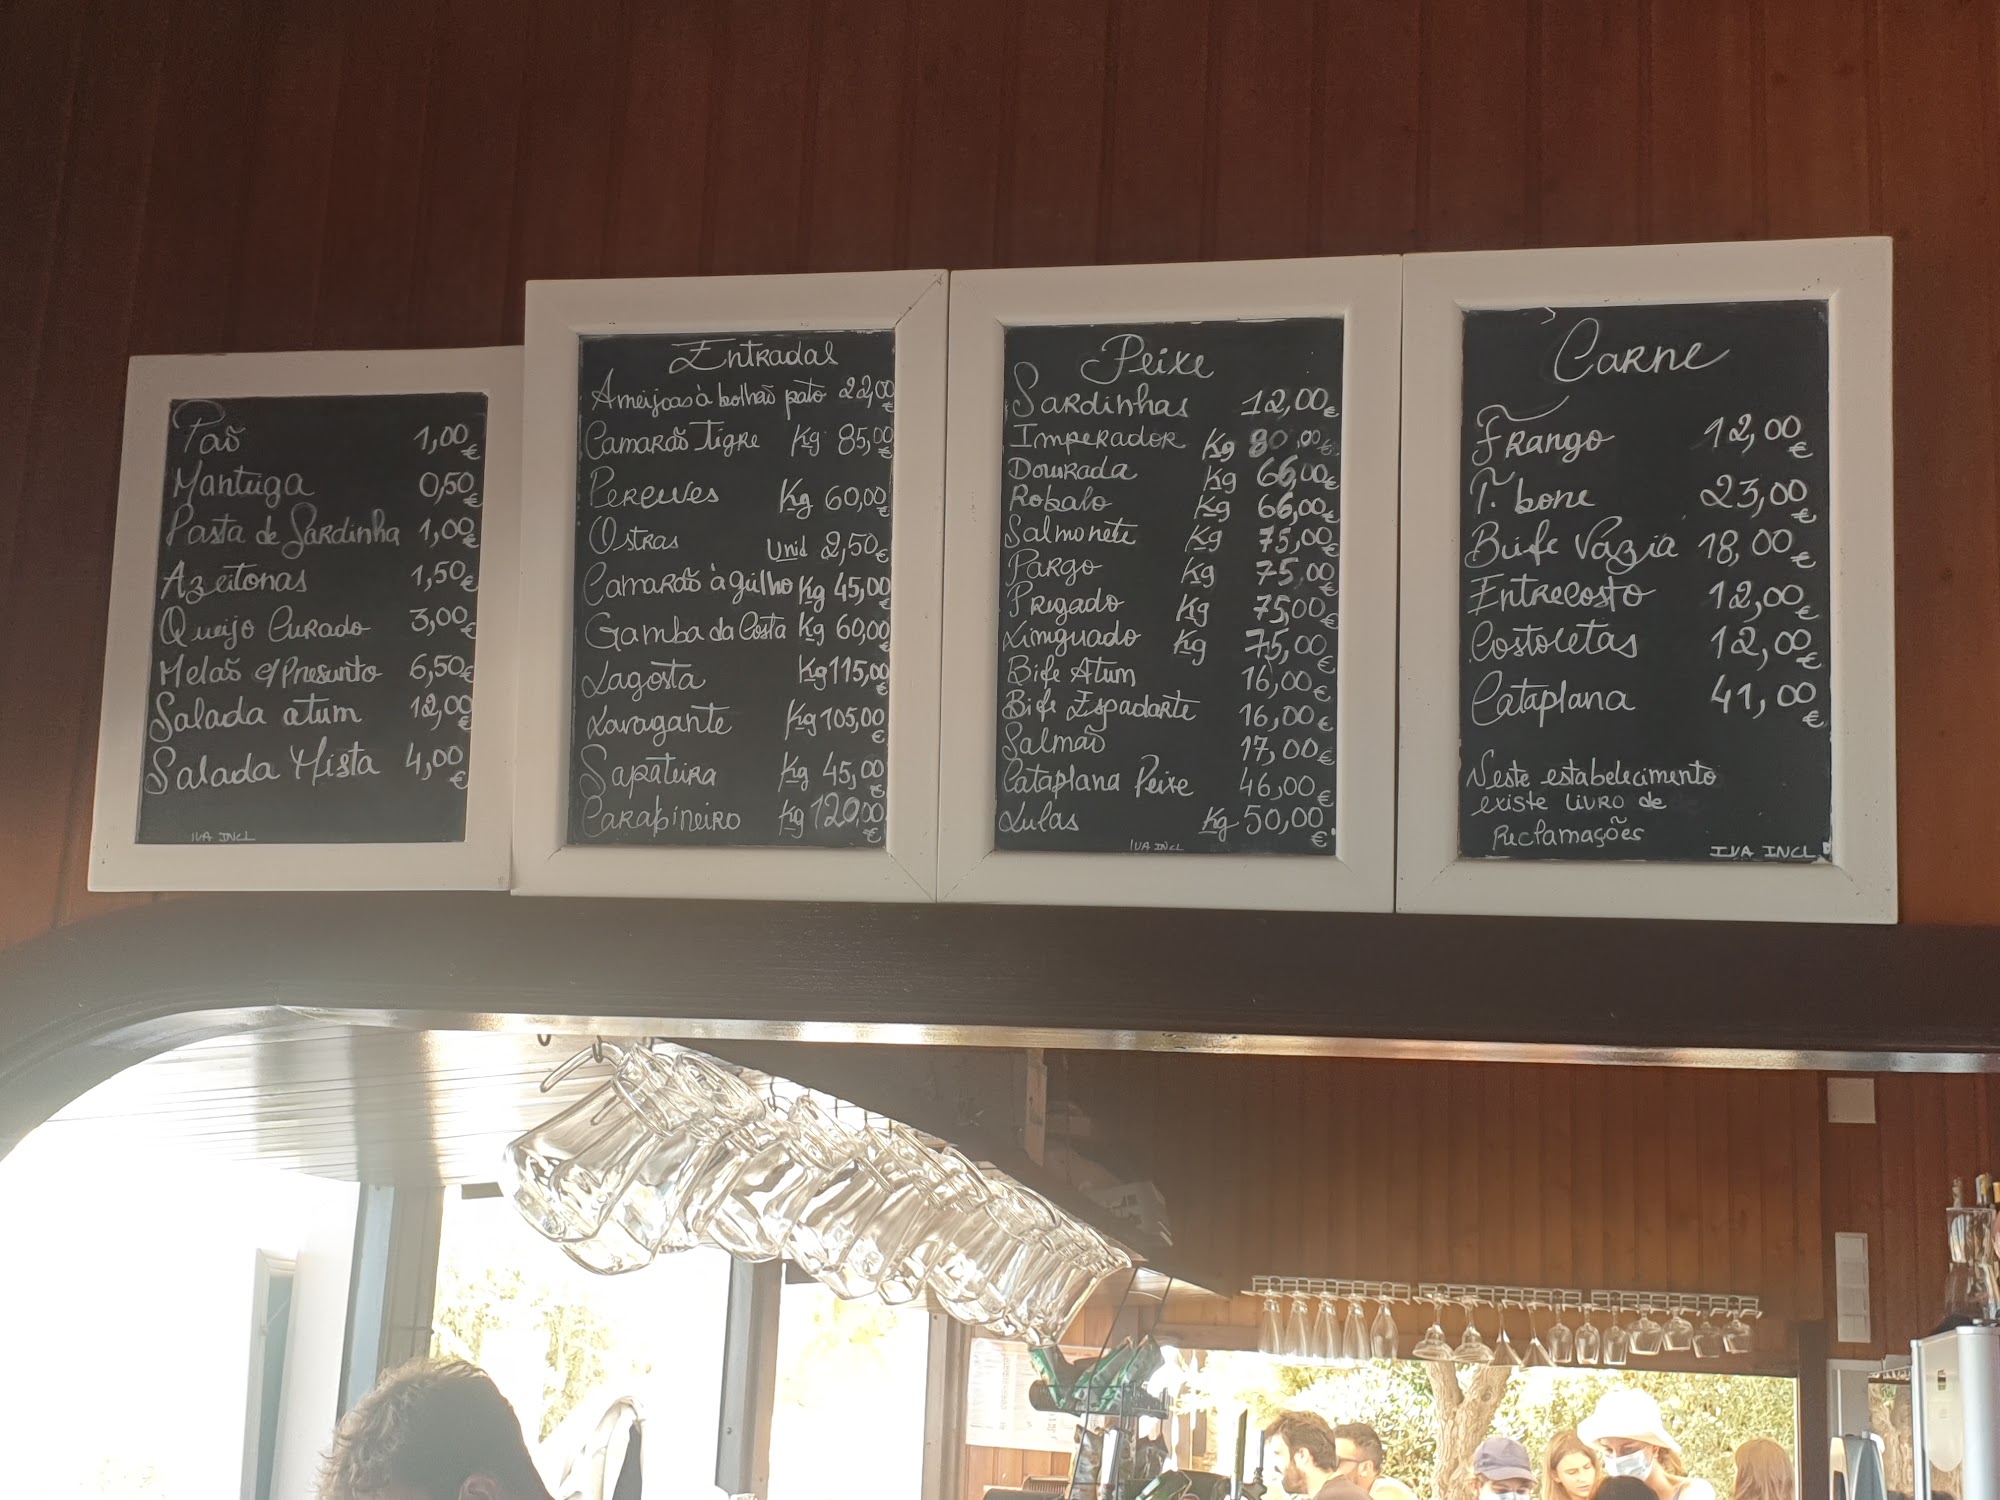 Paõ 1,00€
Mantuga 0,50€
Pasta de Sardinha 1,00€
Azeitonas 1,50€
Queijo Curado 3,00€
Melaõ c/Presunto 6,50€
Salada atum 12,00€
Salada Mista 4,00€
IVA INCL
Entradas
Ameijoas à bolhaõ pato 22,00€
Camaraõ Tigre Kg 85,00€
Perceves Kg 60,00€
Ostras Unid 2,50€
Camaraõ àguilho Kg 45,00€
Gamba da Costa Kg 60,00€
Lagosta Kg 115,00€
Lavagante Kg 105,00€
Sapateira Kg 45,00€
Carabineiro Kg 120,00€
Peixe
Sardinhas 12,00€
Imperador Kg 80,00€
Dourada Kg 66,00€
Robalo Kg 66,00€
Salmonete Kg 75,00€
Pargo Kg 75,00€
Pregado Kg 75,00€
Linguado Kg 75,00€
Bife Atum 16,00€
Bife Espadarte 16,00€
Salmaõ 17,00€
Cataplana Peixe 46,00€
Lulas Kg 50,00€
IVA INCL
Carne
Frango 12,00€
T. bone 23,00€
Bife Vazia 18,00€
Entrecosto 12,00€
Costoletas 12,00€
Cataplana 41,00€
Neste estabelecimento
existe livro de
Reclamações
IVA INCL